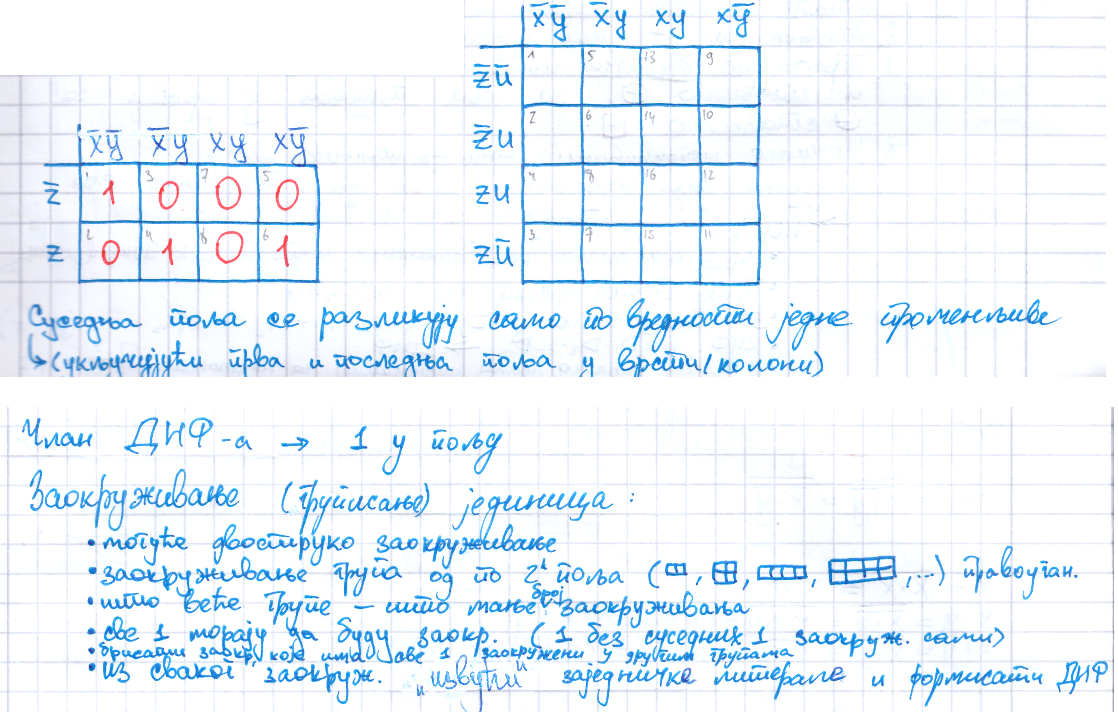 x̄ȳ x̄y xy xȳ
z̄ū 1 5 13 9
z̄u 2 6 14 10
zu 4 8 16 12
zū 3 7 15 11
x̄ȳ x̄y xy xȳ
z̄ 1 1 3 0 7 0 5 0
z 2 0 4 1 8 0 6 1
Суседња поља се разликују само по вредности једне променљиве
↳ (укључујући прва и последња поља у врсти/колони)
Члан ДНФ-а → 1 у пољу
Заокруживање (груписање) јединица:
• могуће двоструко заокруживање
• заокруживање група од по 2ᵏ поља ( , , , , ...) правоуган.
• што веће групе – што мање број заокруживања
• све 1 морају да буду заокр. (1 без суседних 1 заокруж. сами)
• брисати заокр. које има све 1 заокружени у другим групама
• из сваког заокруж. „извући" заједничке литерале и формисати ДНФ